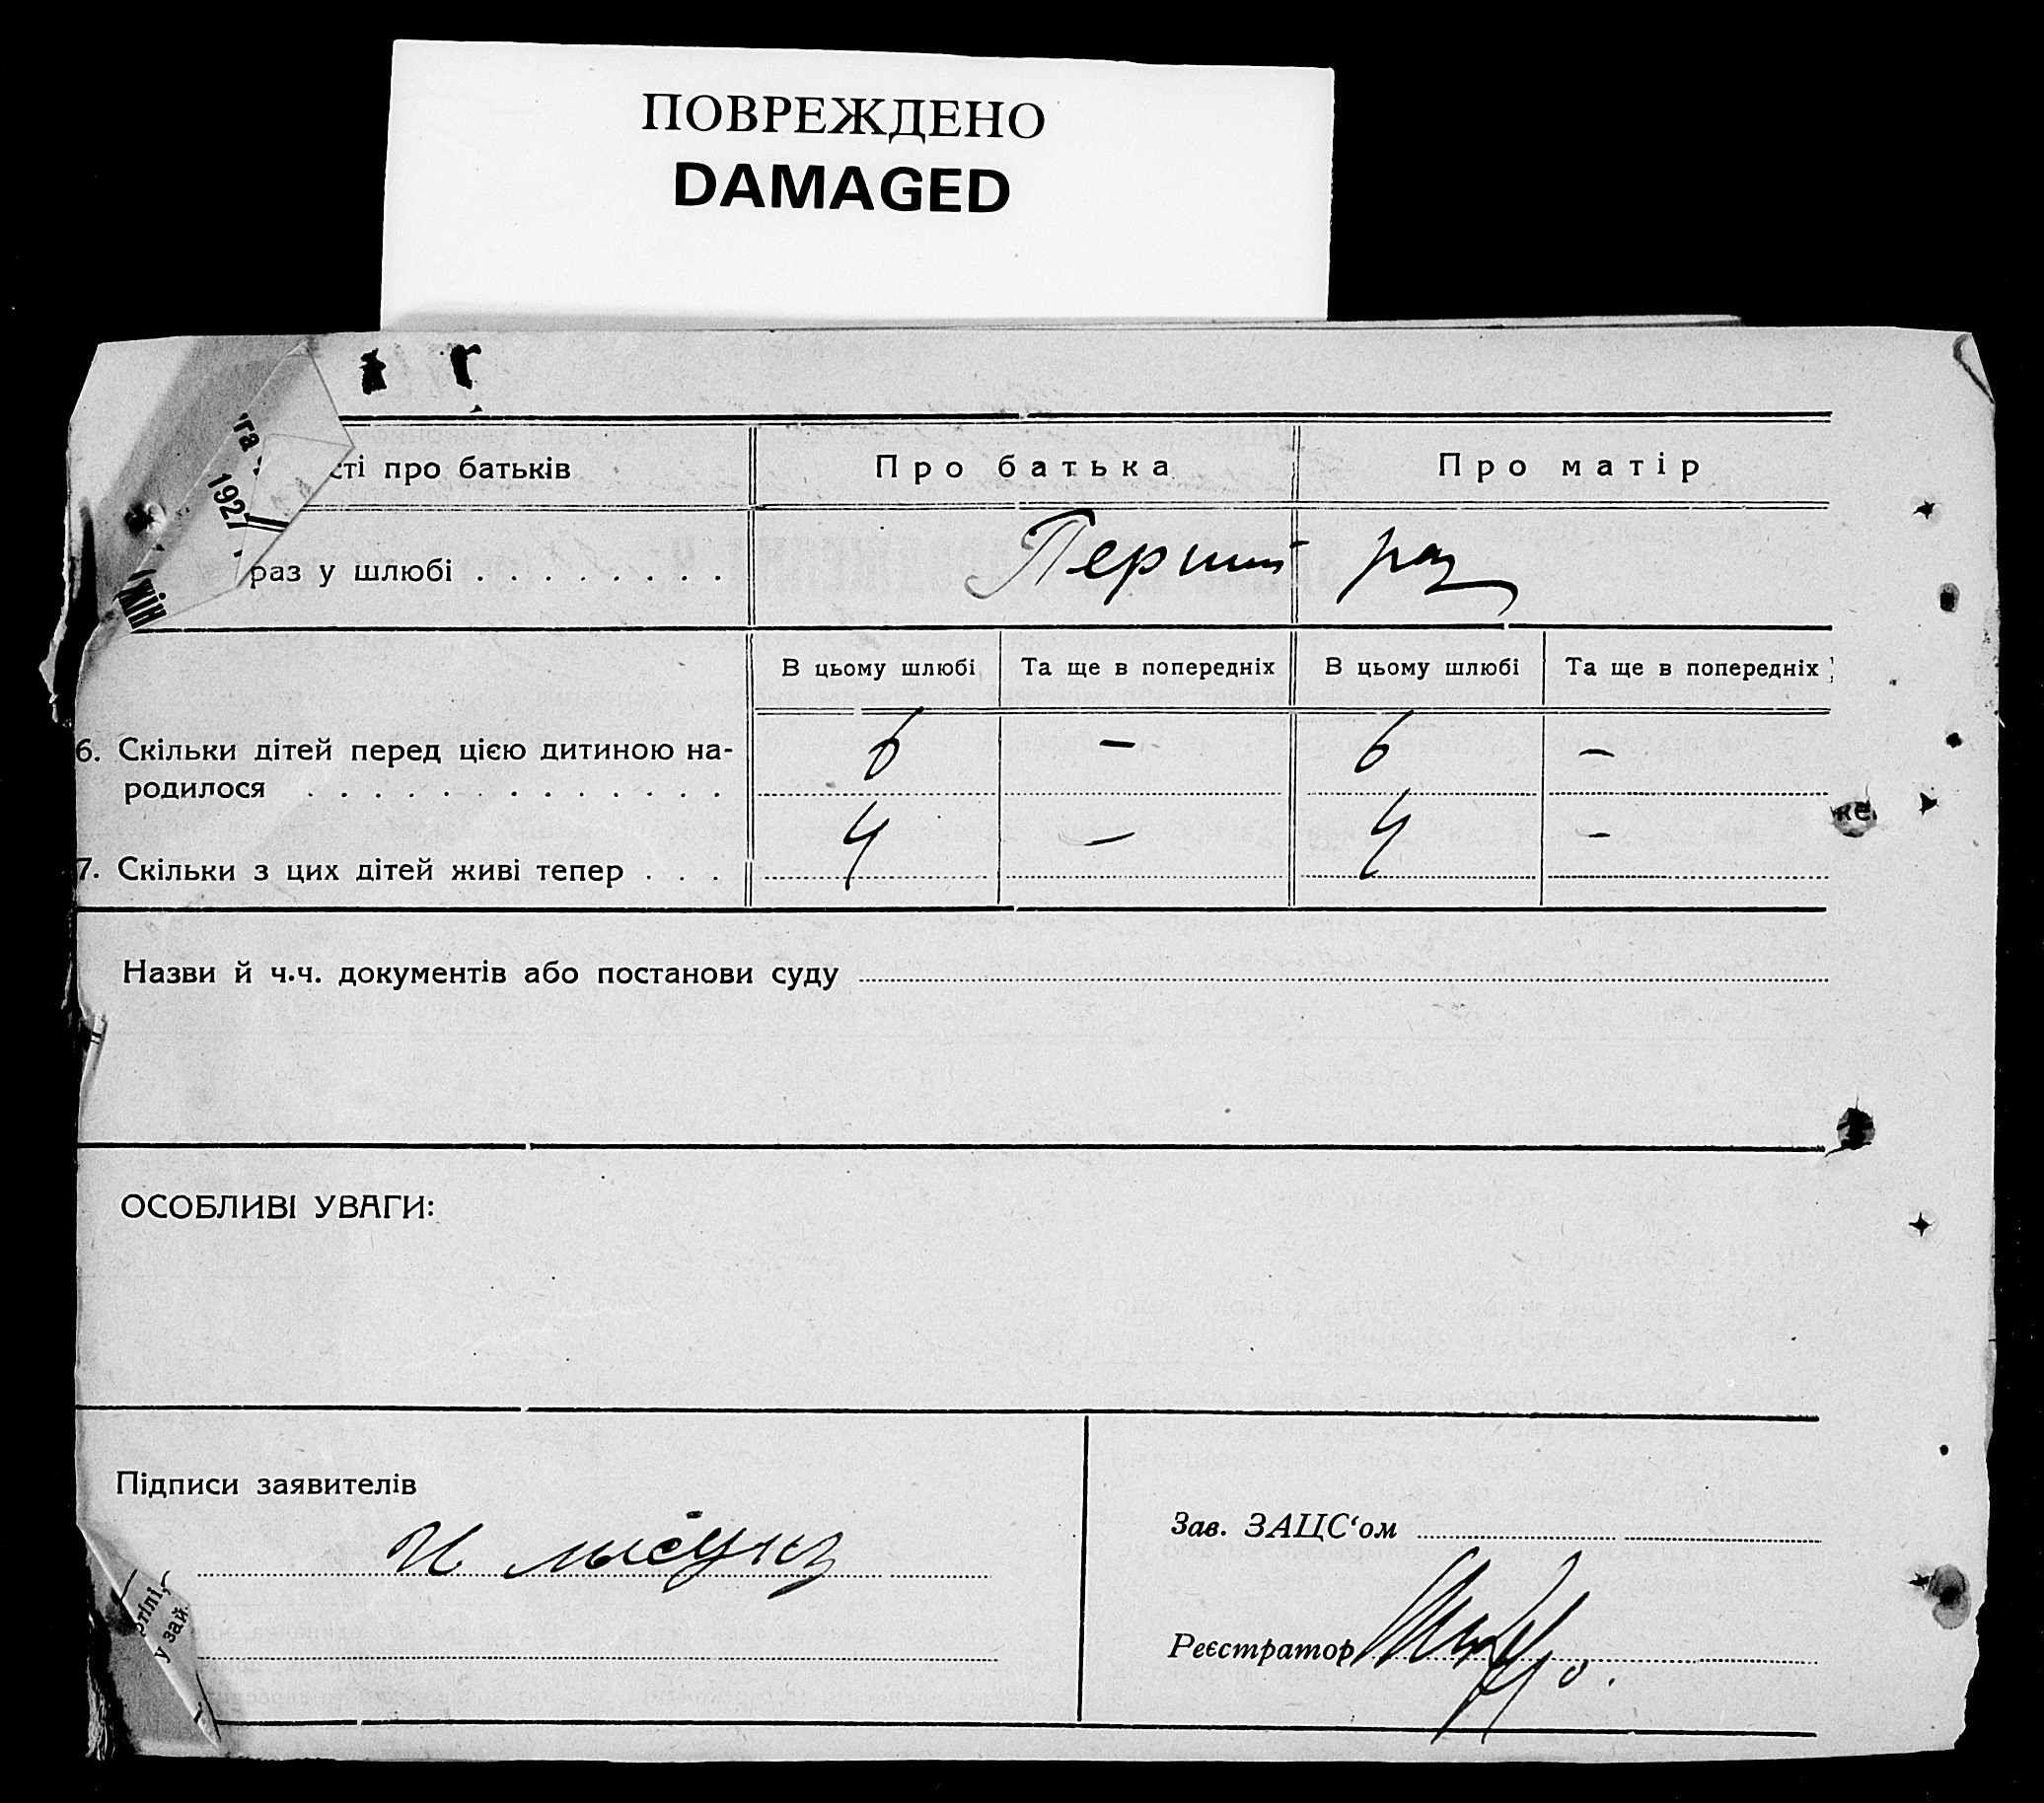 ПОВРЕЖДЕНО
DAMAGED
та
1927
жін
сті про батьків
Про батька
Про матір
раз у шлюбі . . . . . . . .
Перший раз
В цьому шлюбі
Та ще в попередніх
В цьому шлюбі
Та ще в попередніх
6. Скільки дітей перед цією дитиною на-
родилося . . . . . . . . . . . . .
6 – 6 –
7. Скільки з цих дітей живі тепер . . .
4 – 4 –
Назви й ч.ч. документів або постанови суду
ОСОБЛИВІ УВАГИ:
Підписи заявителів
Зав. ЗАЦС‘ом
Реєстратор
у зай.